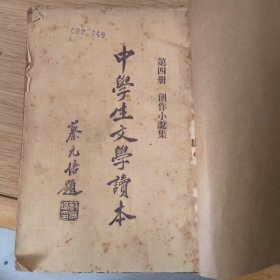 第四册 創作小說集
中學生文學讀本
蔡元培題